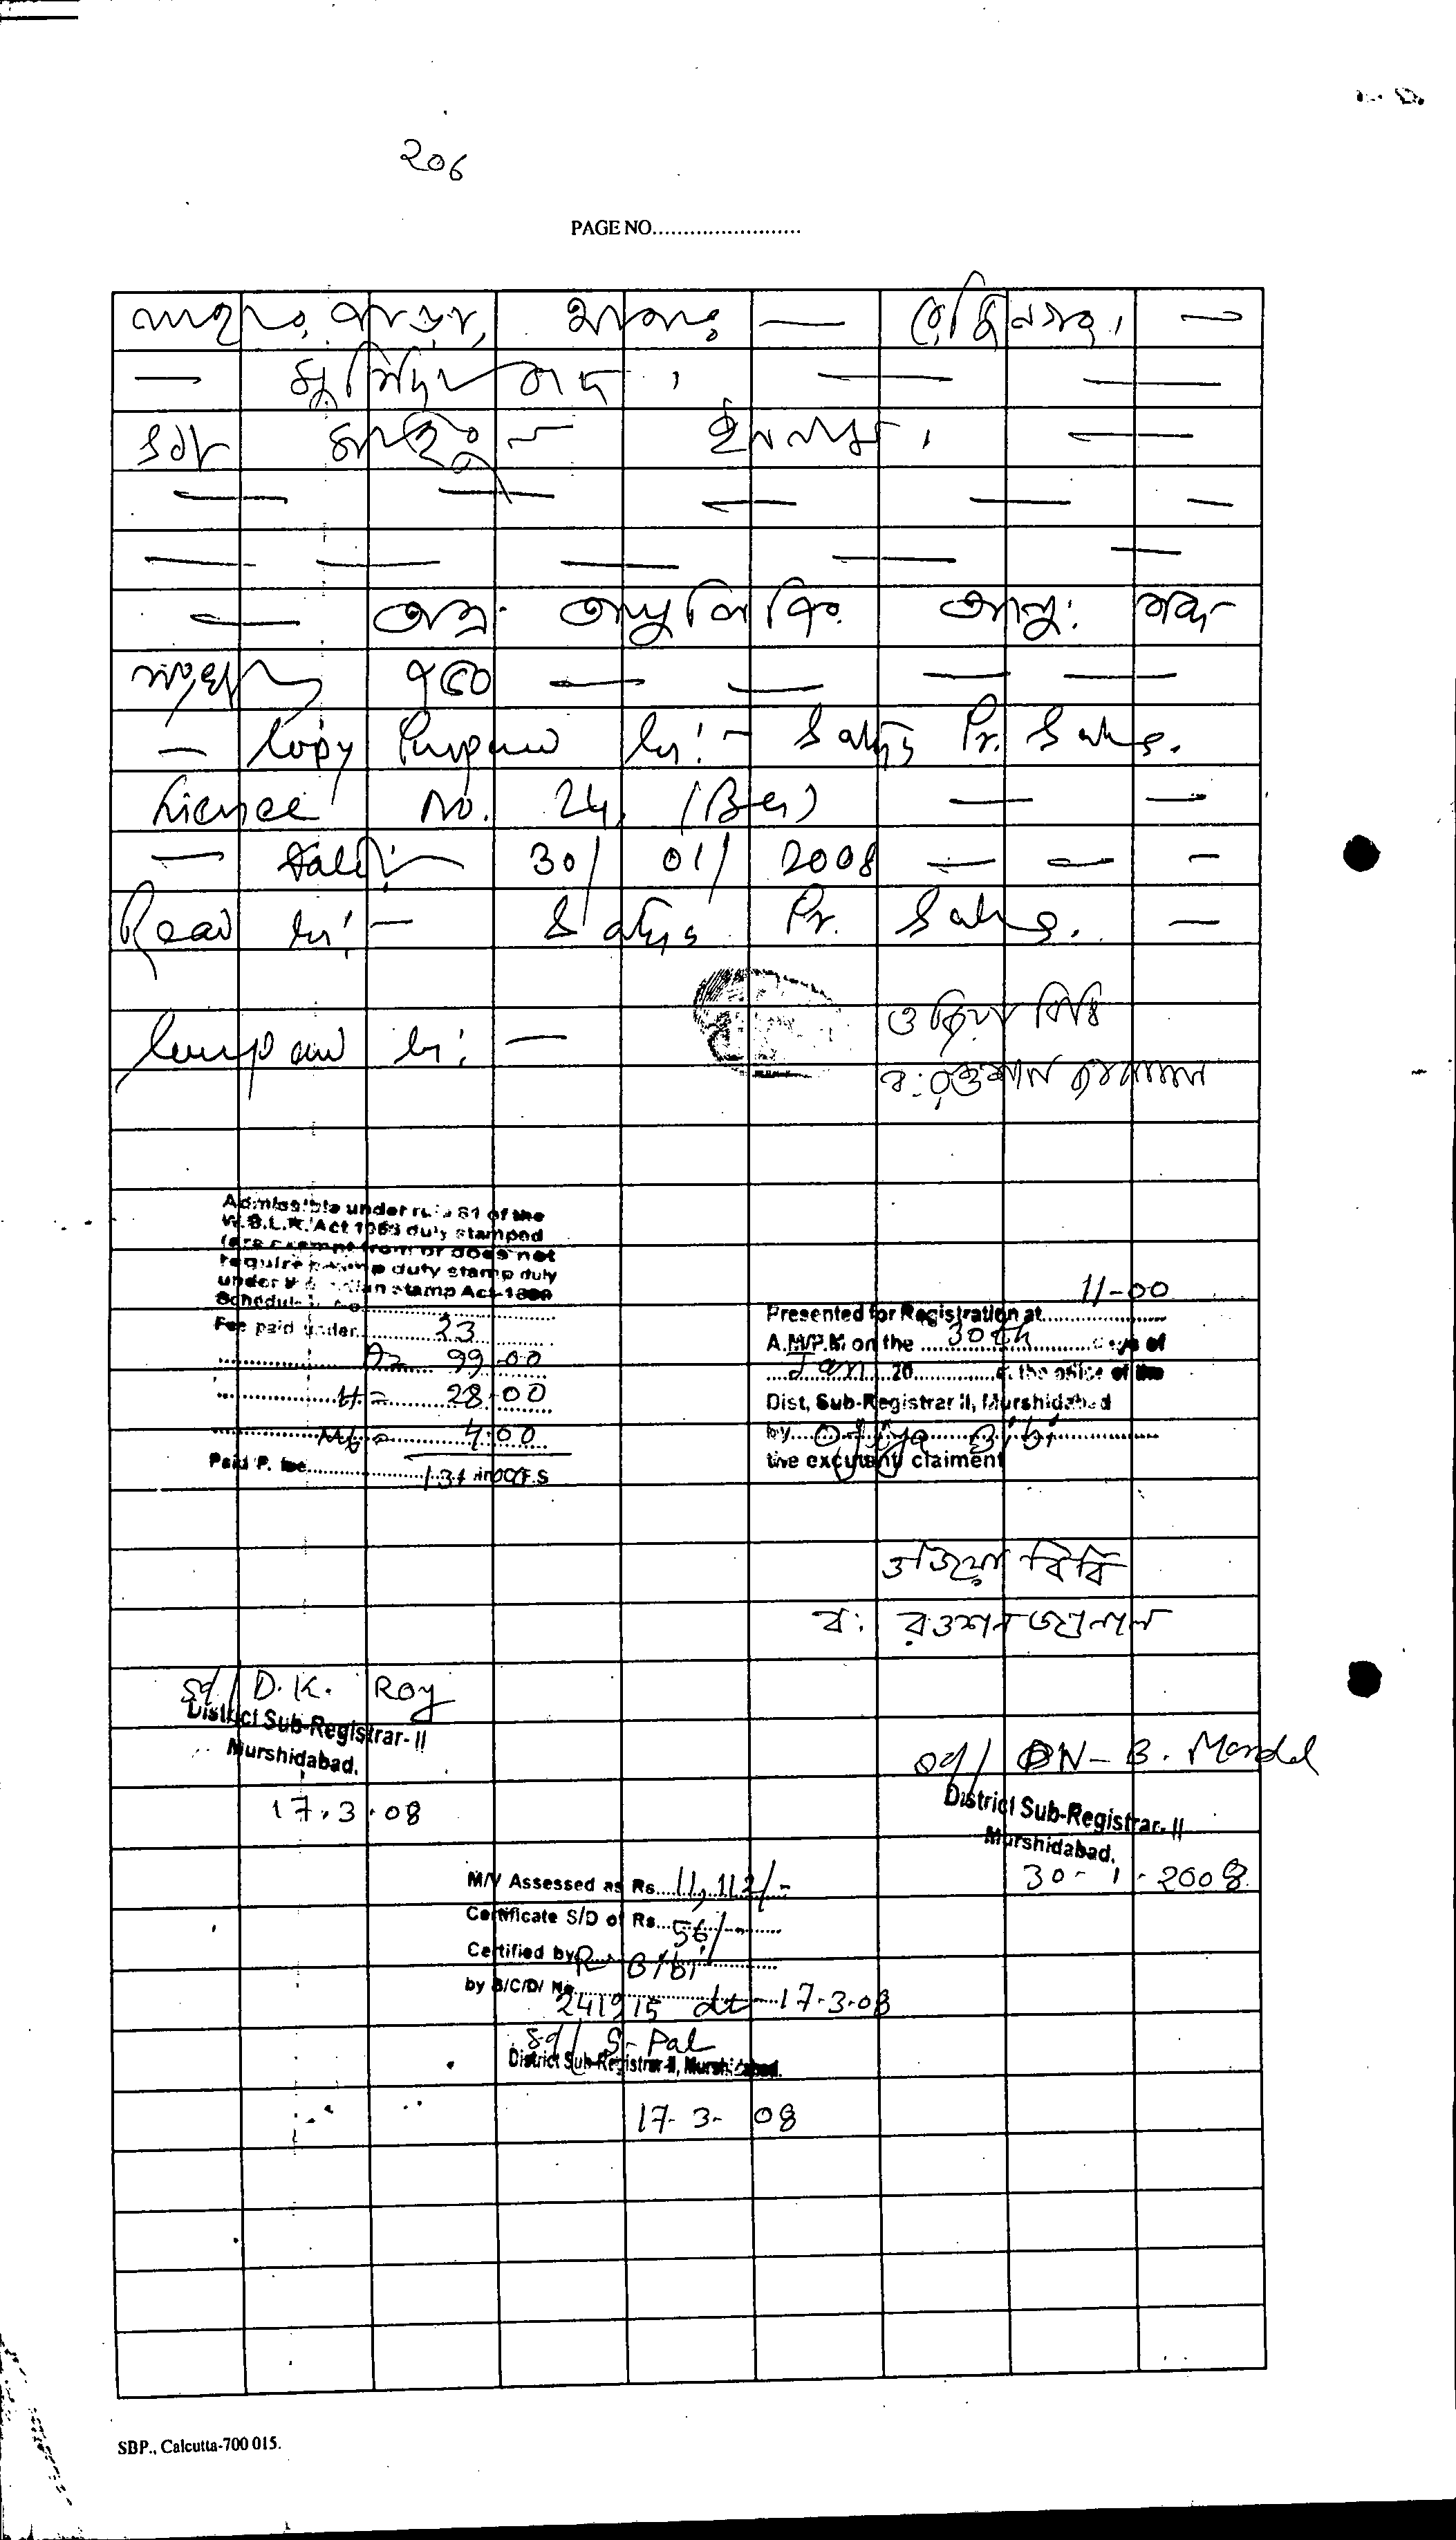 ২০৬
PAGE NO.........................
থানা — রেজিনগর। —
— মুর্শিদাবাদ। — —
— অত্র অনুলিপির
সংখ্যা ৭৫০ — — — —
— Copy Prepared by:- Satya Pr. Saha.
Licence No. 24, (Ber) — —
— Date:- 30/01/2008 — — —
Read by:- Satya Pr. Saha. —
ওজিফা বিবি
Compared by: —
ব: রওশন জামাল
Admissible under rule 81 of the
W.B.L.R. Act 1965 duly stamped
(are exempt from or does not
require stamp duty stamp duty
under the Indian stamp Act-1899
Schedule No
Fee paid under 23
A2 99.00
H = 28.00
Mb = 4.00
Paid P. fee 131 in C.F.S
Presented for Registration at 11-00
A.M/P.M on the 30th days of
Jan 20 at the office of the
Dist, Sub-Registrar II, Murshidabad
by Ojifa Bibi
the excutant/ claiment
ওজিফা বিবি
ব: রওশন জামাল
Sd/ D.K. Roy
District Sub-Registrar-II
Murshidabad.
17.3.08
Sd/ N-B. Mandal
District Sub-Registrar-II
Murshidabad.
30-1-2008
M/V Assessed as Rs 11,112/-
Certificate S/D of Rs 56/-
Certified by R Bibi
by B/C/D/ No
241915 dt- 17-3-08
Sd/ S-Pal
District Sub-Registrar-II, Murshidabad.
17-3-08
SBP., Calcutta-700 015.